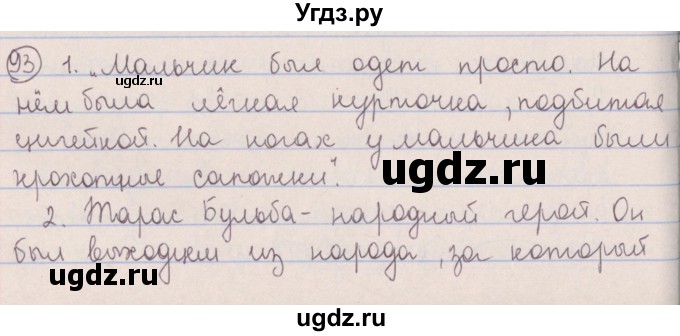 Угдз.ру
93 1. „Мальчик был одет просто. На
нём была лёгкая курточка, подбитая
цигейкой. На ногах у мальчика были
крохотные сапожки".
2. Тарас Бульба - народный герой. Он
был выходцем из народа, за который
ugdz.ru
ugdz.ru
ugdz.ru
ugdz.ru
ugdz.ru